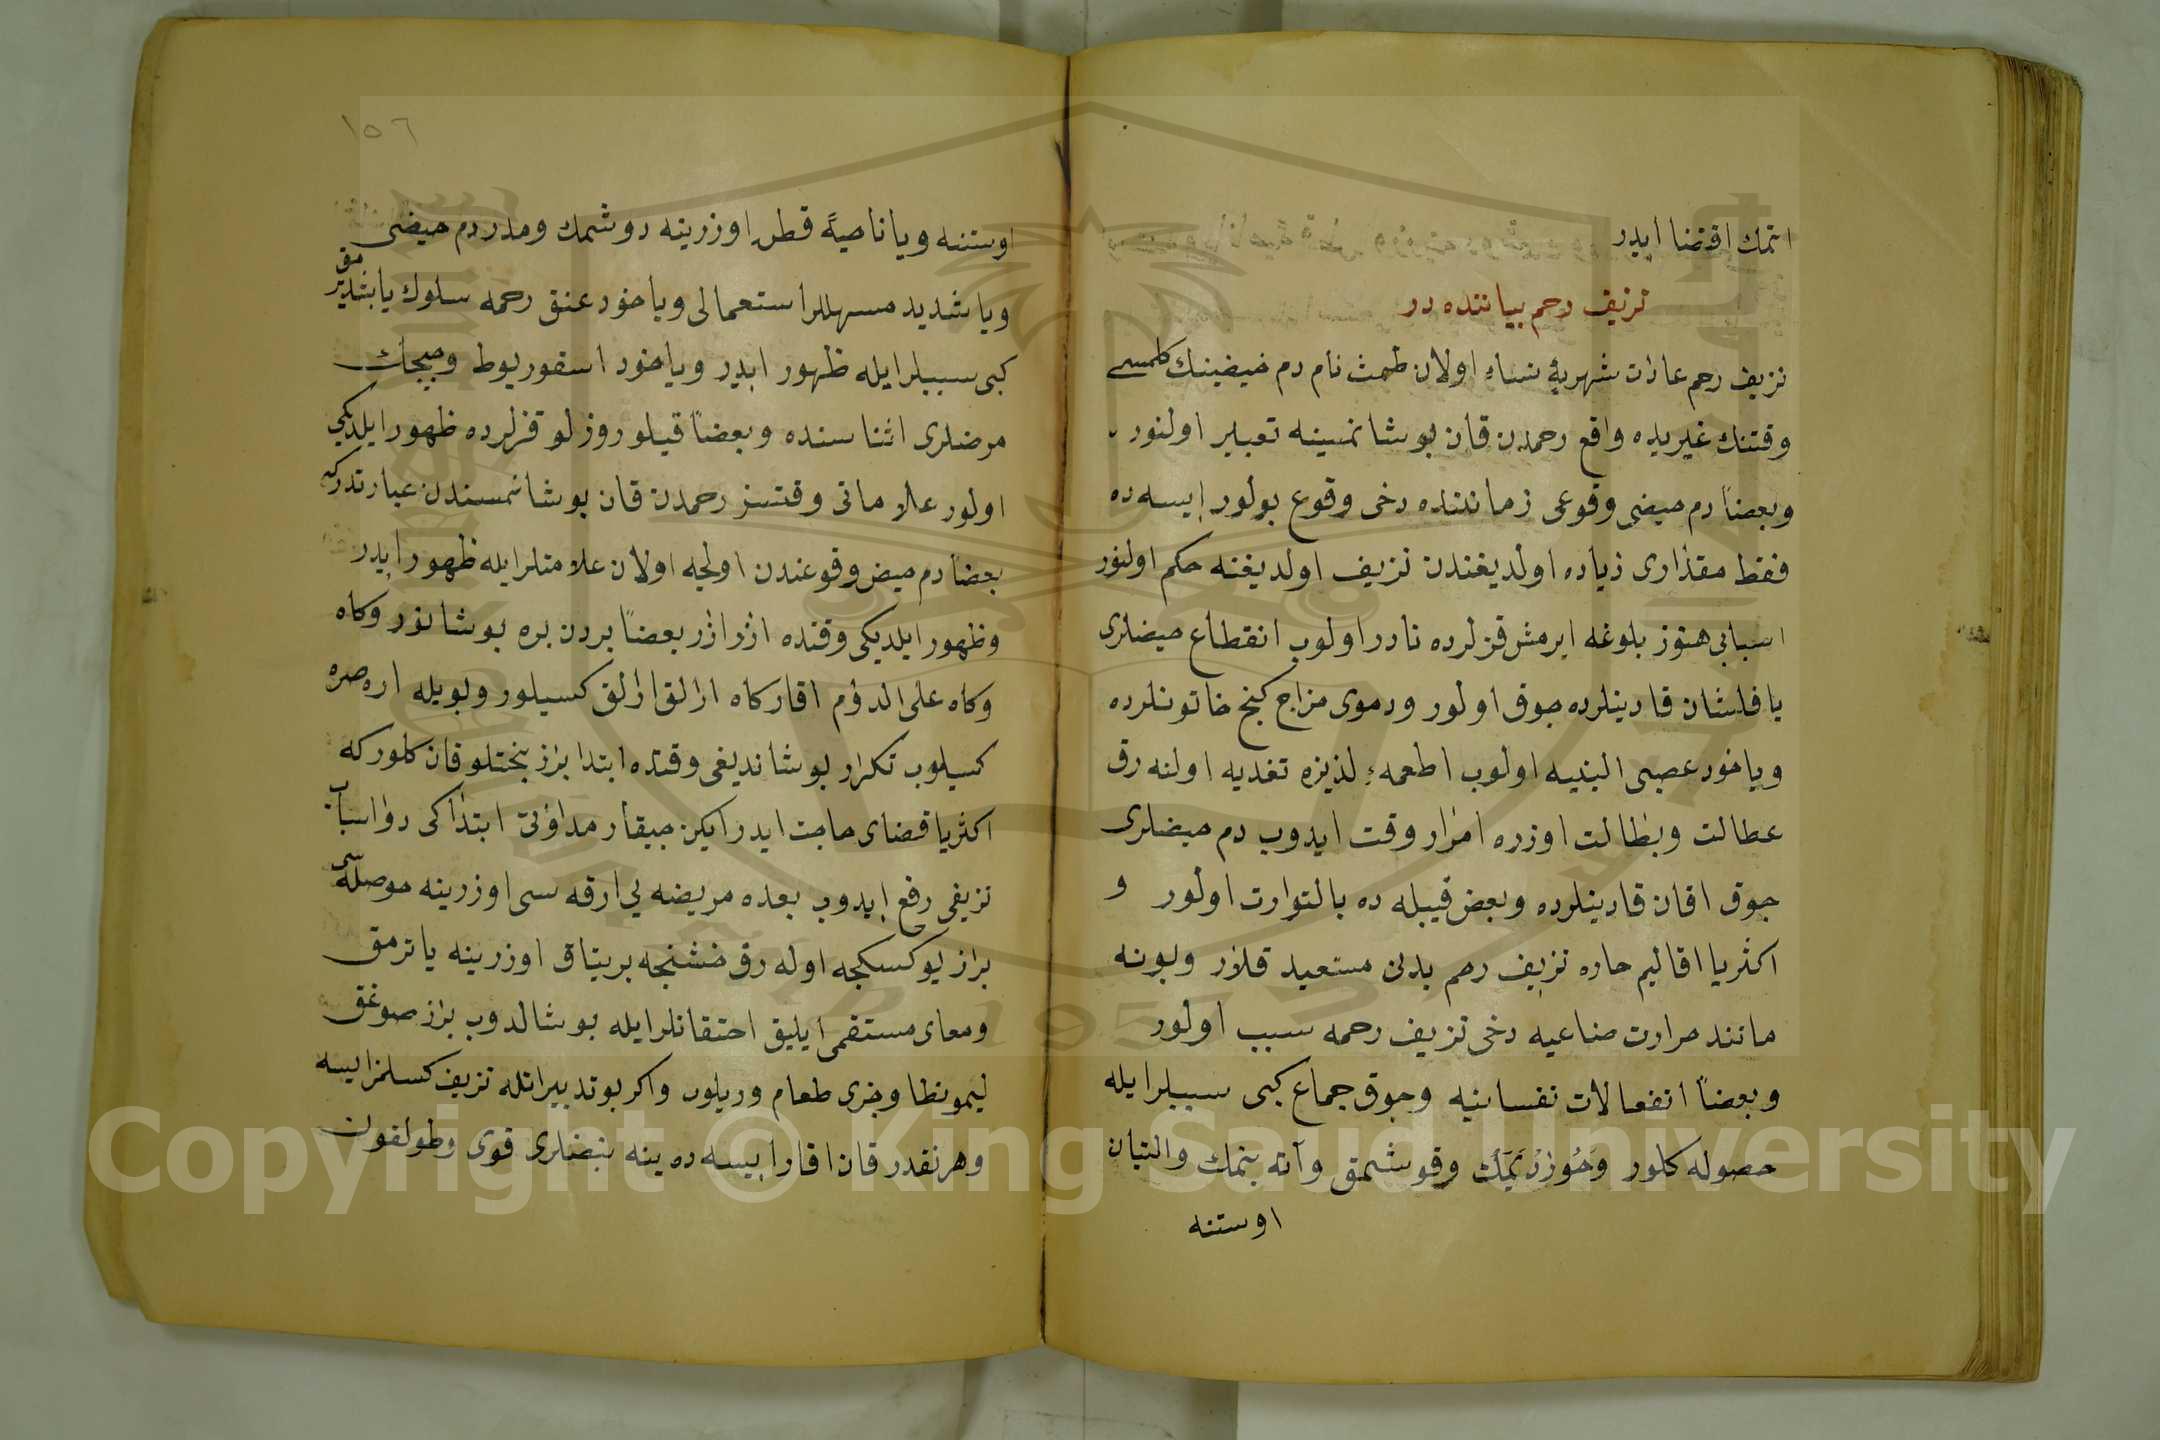 اتمك اقتضا ايدر
نزيف رحم بياننده در
نزيف رحم عادات شهريۀ نساء اولان طمث نام دم حيضينك كلمسى
وقتنك غيريده واقع رحمدن قان بوشانمسينه تعبير اولنور
وبعضاً دم حيضى وقوعى زماننده دخى وقوع بولور ايسه ده
فقط مقدارى زياده اولديغندن نزيف اولديغنه حكم اولنور
اسبابى هنوز بلوغه ايرمش قزلرده نادر اولوب انقطاع حيضلرى
ياقلشان قادينلرده چوق اولور ودموى مزاج كنج خاتونلرده
وياخود عصبى البنيه اولوب اطعمهٔ لذيزه تغديه اولنه رق
عطالت وبطالت اوزره امرار وقت ايدوب دم حيضلرى
چوق اقان قادينلرده وبعض قبيله ده بالتوارت اولور و
اكثريا اقاليم حاره نزيف رحم بدنى مستعيد قلار وبونه
مانند حرارت صناعيه دخى نزيف رحمه سبب اولور
وبعضاً انفعالات نفسانيه وچوق جماع كبى سببلر ايله
حصوله كلور وقوشمق وآته بنمك واليتان
اوستنه
١٥٦
اوستنه ويا ناصيةً قطن اوزرينه دوشمك ومدر دم حيضى
ويا شديد مسهللر استعمالى وياخود عنق رحمه سلوك يابشديرمق
كبى سببلر ايله ظهور ايدر وياخود اسقوربوط وچيچك
مرضلرى اثناسنده وبعضاً قيلوروزلو قزلرده ظهور ايلديكى
اولور علاماتى وقتسز رحمدن قان بوشانمسندن عبارتدركه
بعضاً دم حيض وقوعندن اولجه اولان علامتلر ايله ظهور ايدر
وظهور ايلديكى وقتده ازر ازر بعضاً بردن بره بوشانور وكاه
وكاه على الدوام اقار كاه ارالق ارالق كسيلور وبويله اره صره
كسيلوب تكرار بوشانديغى وقتده ابتدا براز پختلو قان كلور كه
اكثريا قضاى حاجت ايدر ايكن چيقار مداواتى ابتدا كى دوا اسباب
نزيفى رفع ايدوب بعده مريضه يى ارقه سى اوزرينه حوصله سى
براز يوكسكجه اوله رق خشنجه بر يتاق اوزرينه ياترمق
ومعاى مستقمى ايليق احتقانلر ايله بوشالدوب براز صوغق
ليموناطا وجزى طعام ويريلوب واكر بو تدبيراتله نزيف كسلمز ايسه
وهر نقدر قان اقار ايسه ده ينه نبضلرى قوى وطولغون
Copyright © King Saud University